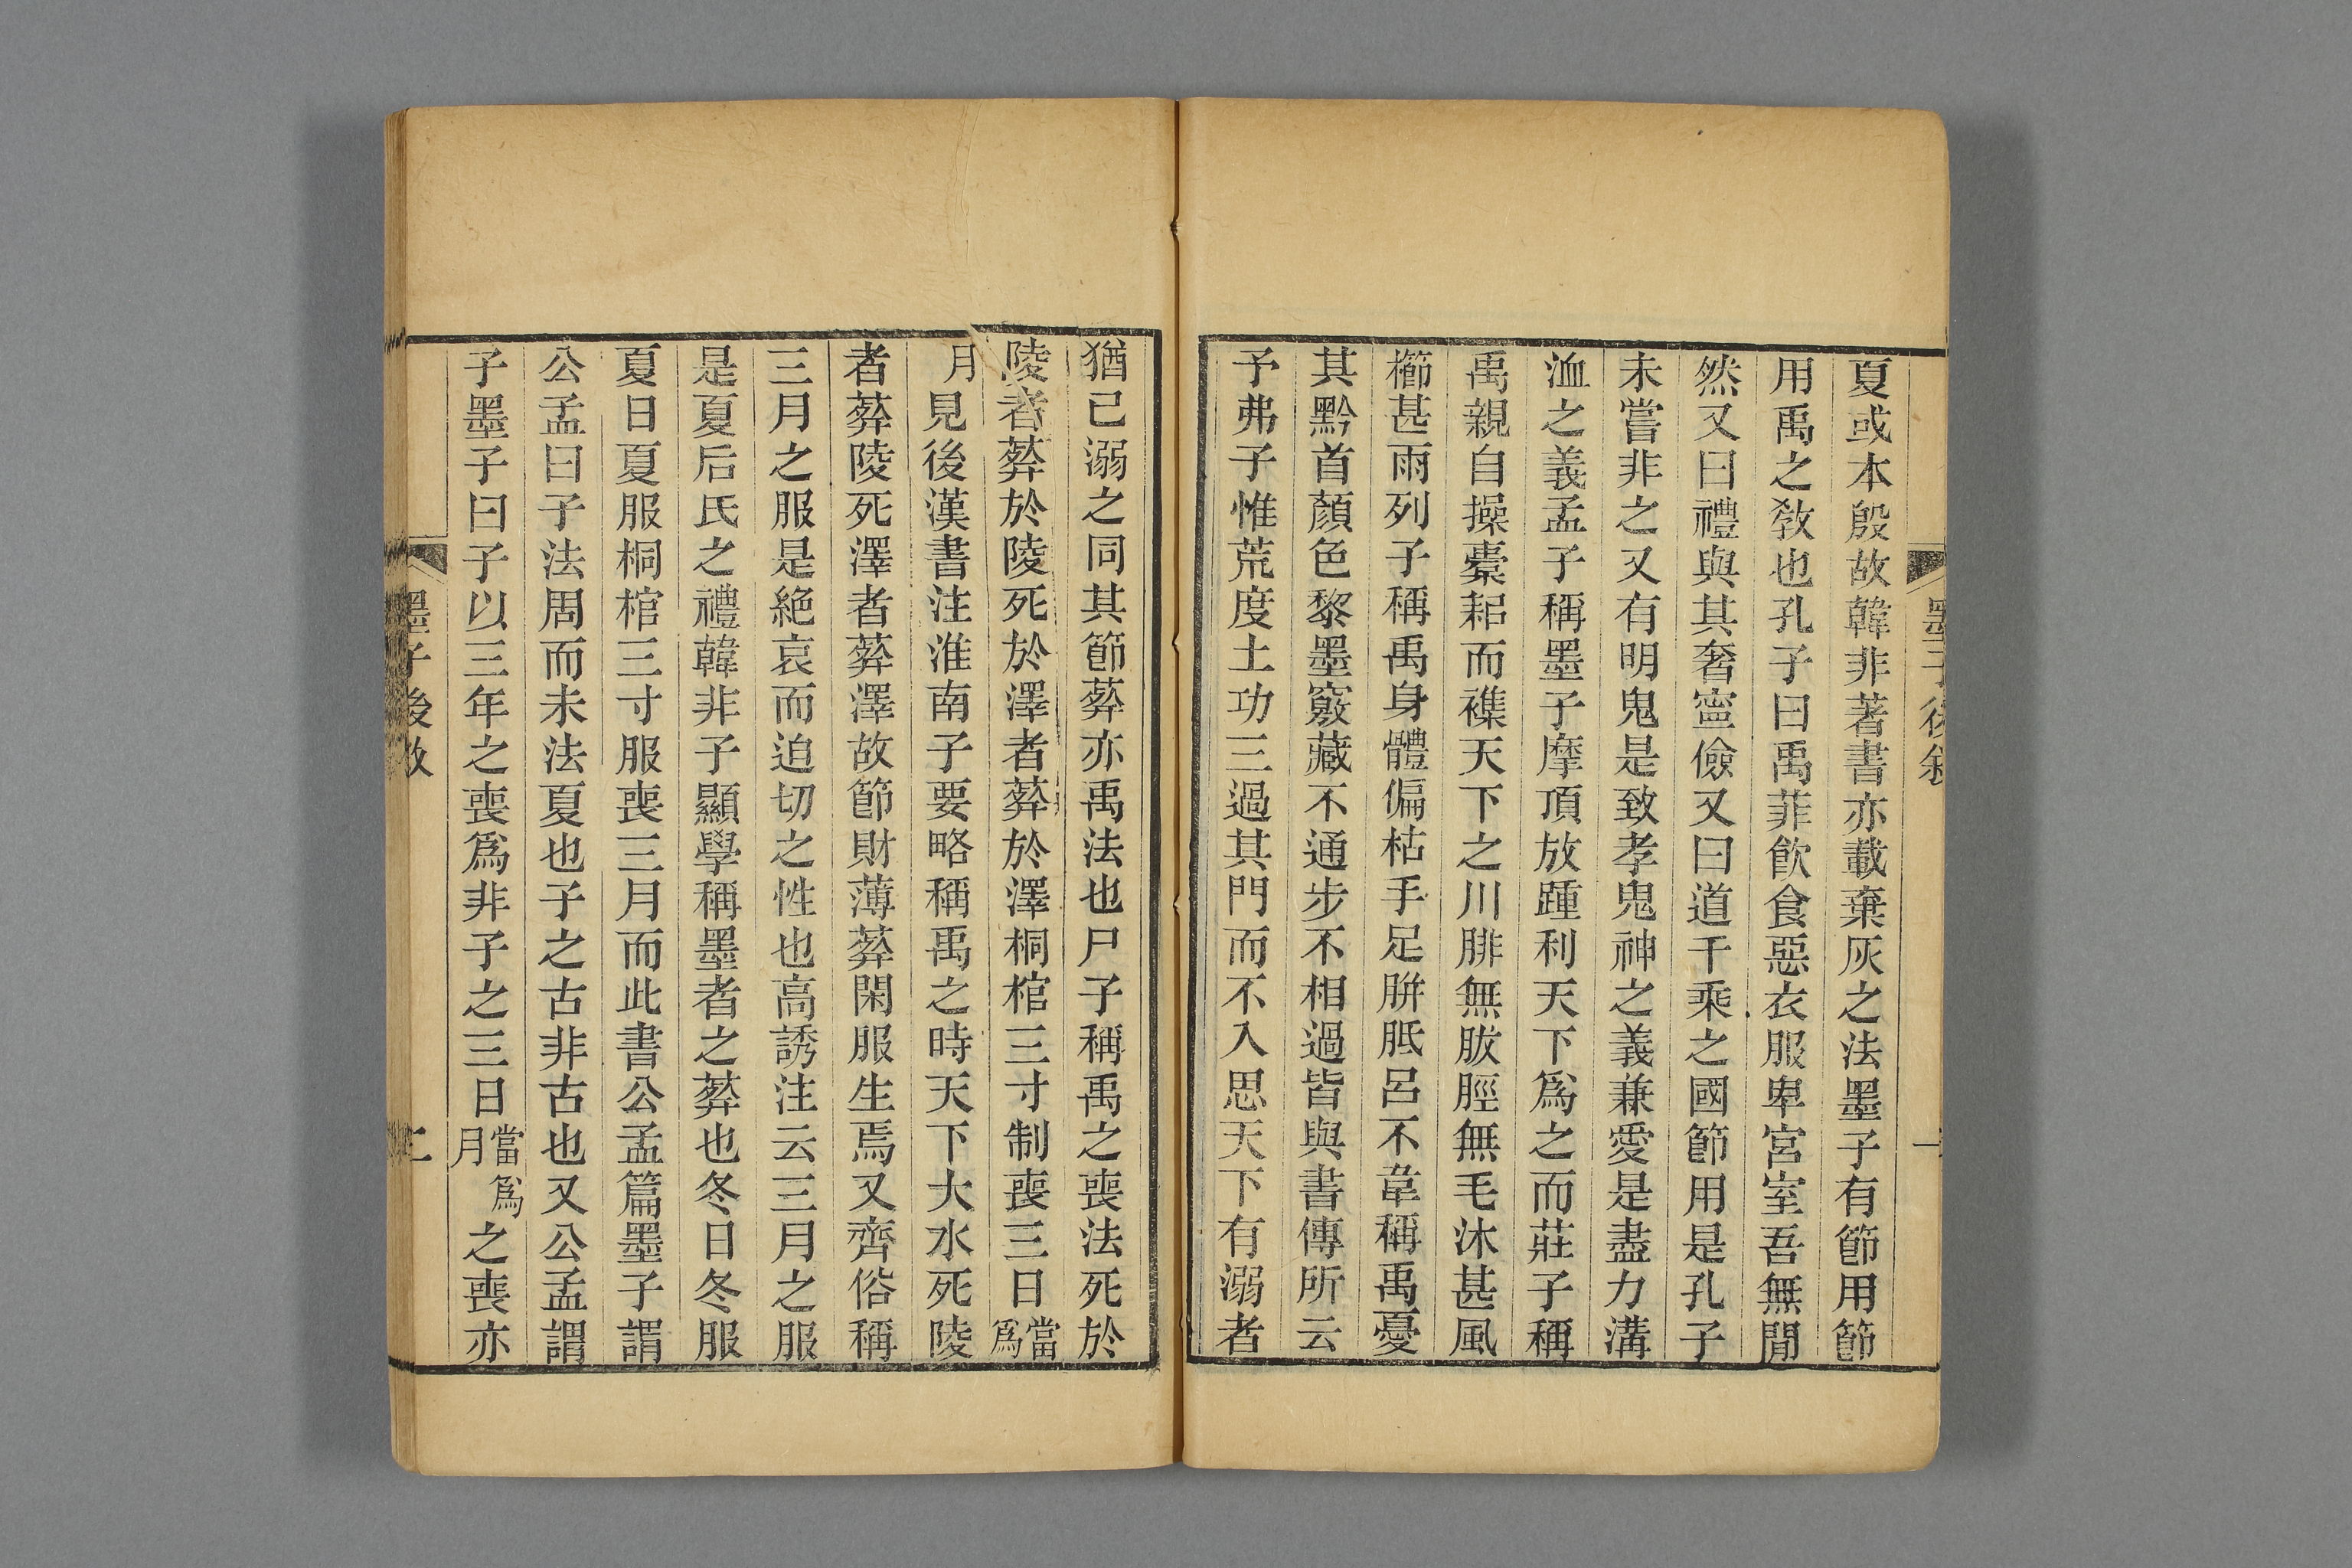 夏或本殷故韓非著書亦載棄灰之法墨子有節用節
用禹之敎也孔子曰禹菲飲食惡衣服卑宮室吾無閒
然又曰禮與其奢寍儉又曰道千乘之國節用是孔子
未嘗非之又有明鬼是致孝鬼神之義兼愛是盡力溝
洫之義孟子稱墨子摩頂放踵利天下爲之而莊子稱
禹親自操橐耜而襍天下之川腓無胈脛無毛沐甚風
櫛甚雨列子稱禹身體偏枯手足胼胝呂不韋稱禹憂
其黔首顏色黎墨竅藏不通步不相過皆與書傳所云
予弗子惟荒度土功三過其門而不入思天下有溺者
猶己溺之同其節葬亦禹法也尸子稱禹之喪法死於
陵者葬於陵死於澤者葬於澤桐棺三寸制喪三日當爲
月見後漢書注淮南子要略稱禹之時天下大水死陵
者葬陵死澤者葬澤故節財薄葬閑服生焉又齊俗稱
三月之服是絕哀而迫切之性也高誘注云三月之服
是夏后氏之禮韓非子顯學稱墨者之葬也冬日冬服
夏日夏服桐棺三寸服喪三月而此書公孟篇墨子謂
公孟曰子法周而未法夏也子之古非古也又公孟謂
子墨子曰子以三年之喪爲非子之三日當爲月之喪亦
墨子後敘
二